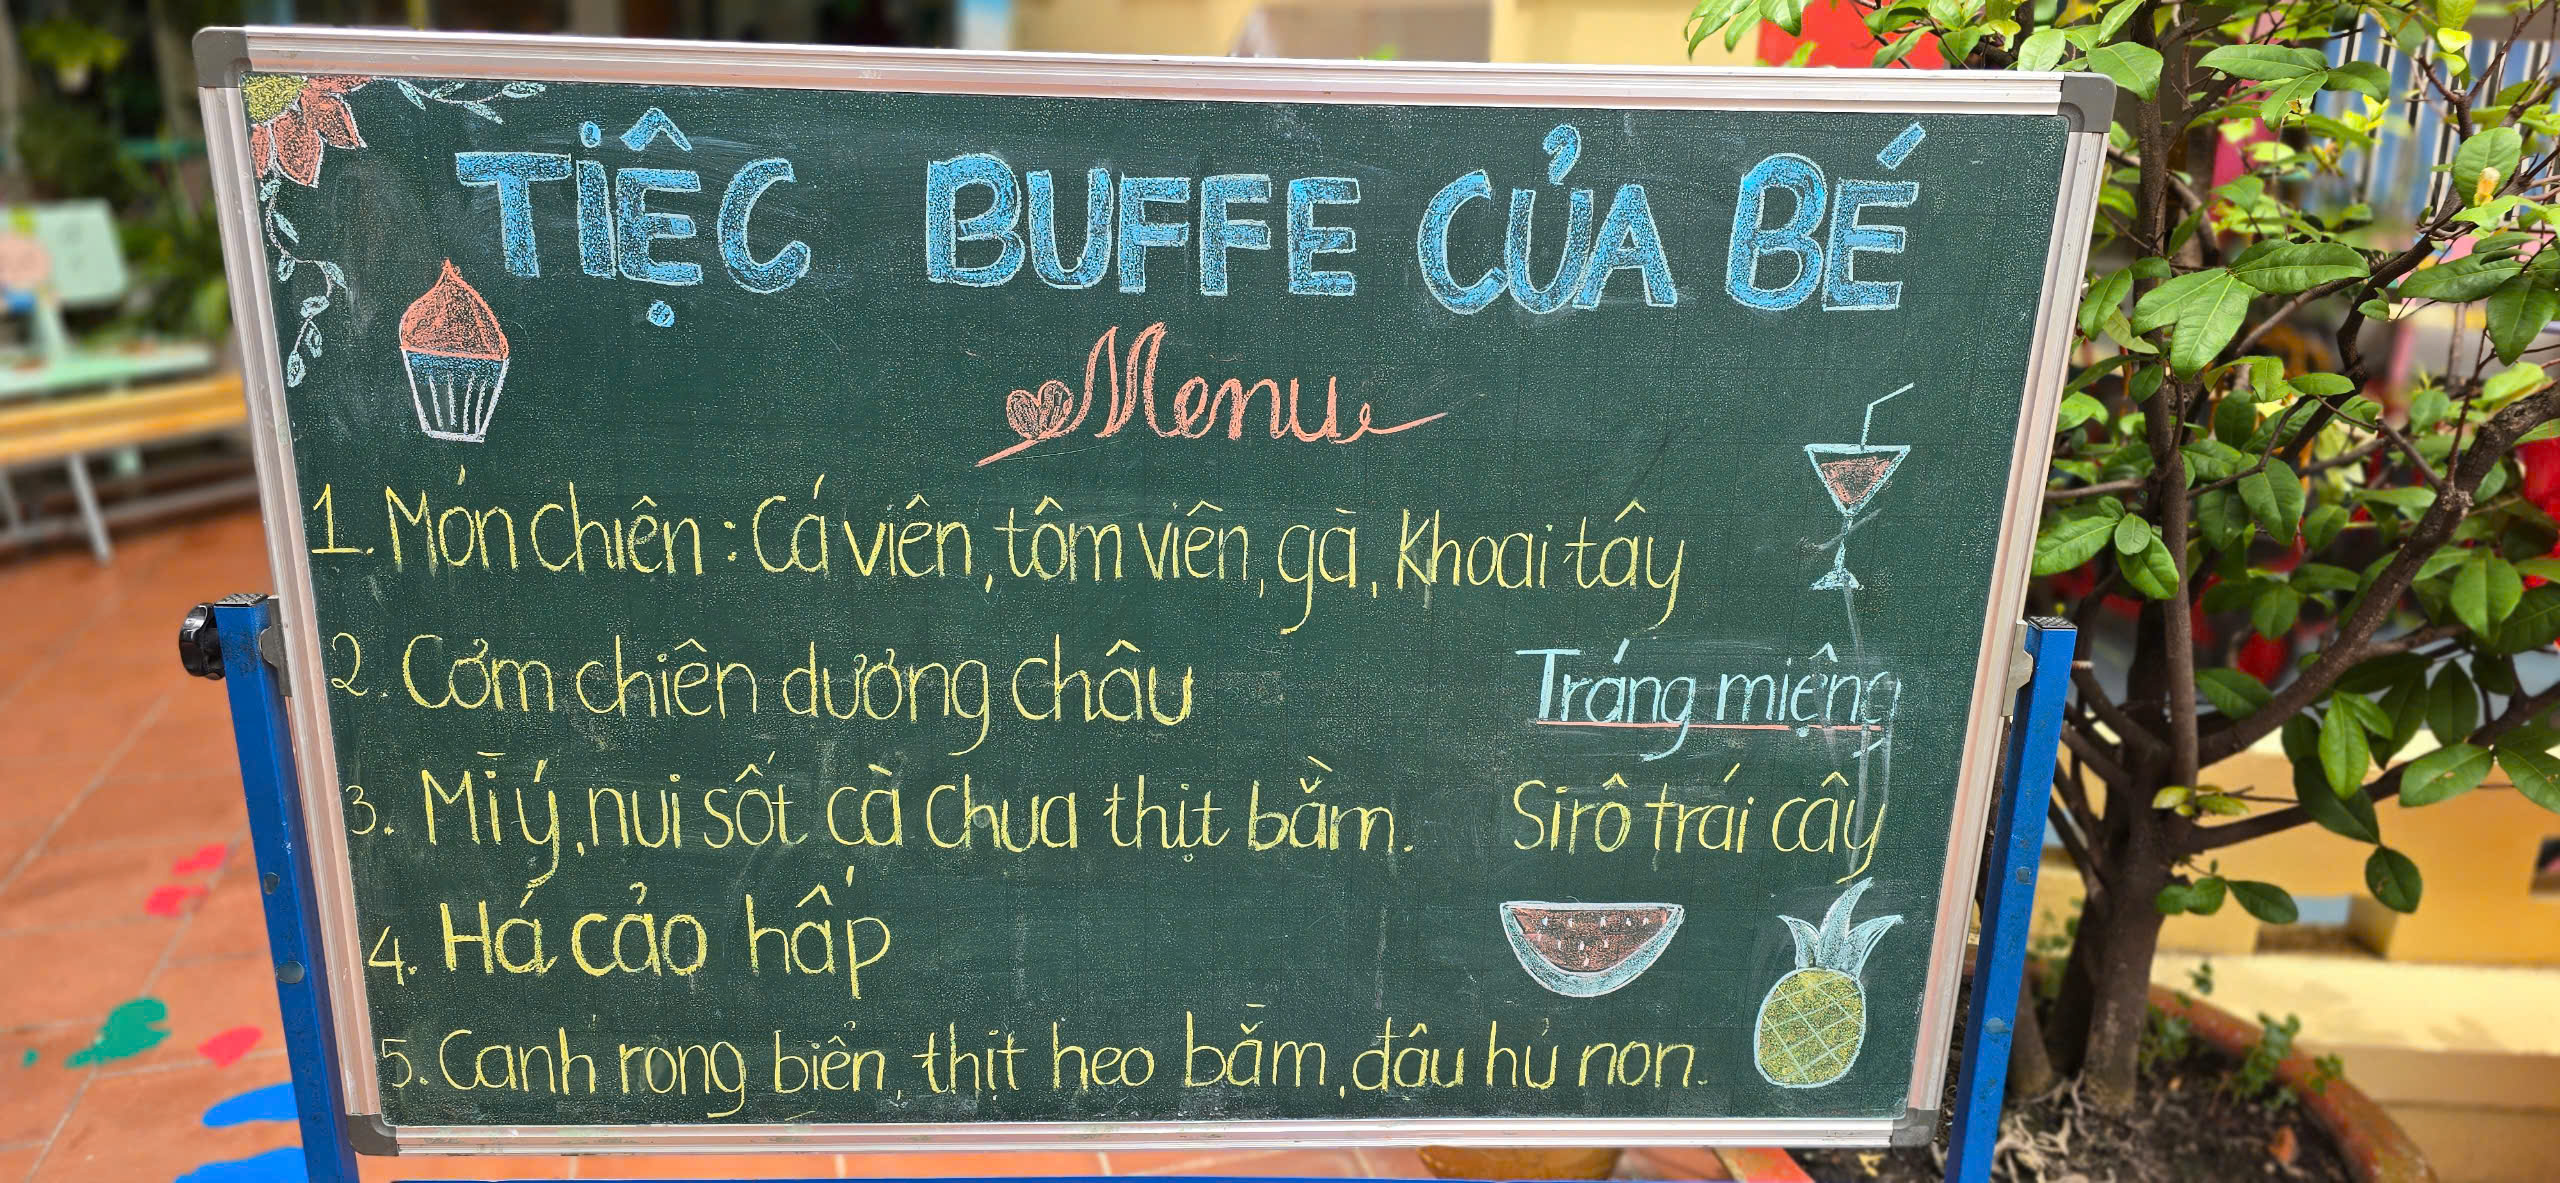 TIỆC BUFFE CỦA BÉ
Menu
1. Món chiên : Cá viên, tôm viên, gà, khoai tây
2. Cơm chiên dương châu
3. Mì ý, nui sốt cà chua thịt bằm.
4. Há cảo hấp
5. Canh rong biển, thịt heo bằm, đâu hủ non.
Tráng miệng
Sirô trái cây